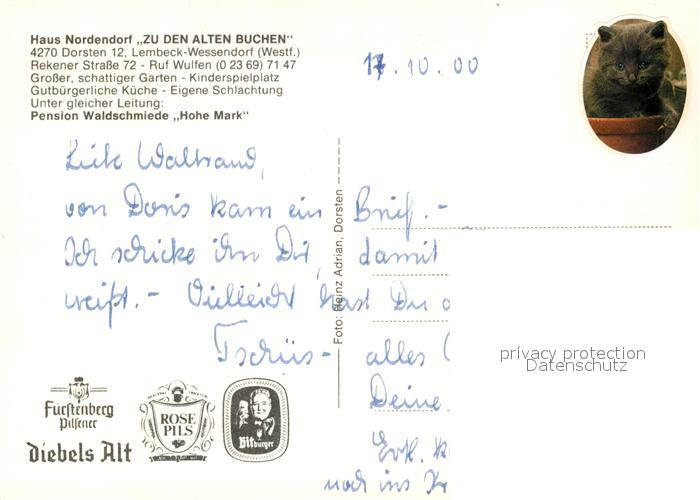 Haus Nordendorf „ZU DEN ALTEN BUCHEN"
4270 Dorsten 12, Lembeck-Wessendorf (Westf.)
Rekener Straße 72 - Ruf Wulfen (0 23 69) 71 47
Großer, schattiger Garten - Kinderspielplatz
Gutbürgerliche Küche - Eigene Schlachtung
Unter gleicher Leitung:
Pension Waldschmiede „Hohe Mark"
17.10.00
Waltraud,
von Doris kam ein Brief. -
Ich schicke ihn Dir, damit
weißt. - Vielleicht hast Du
Tschüs - alles
Deine
noch ins
Foto: Heinz Adrian, Dorsten
Fürstenberg
Pilsener
Diebels Alt
ROSE
PILS
Bitburger
privacy protection
Datenschutz